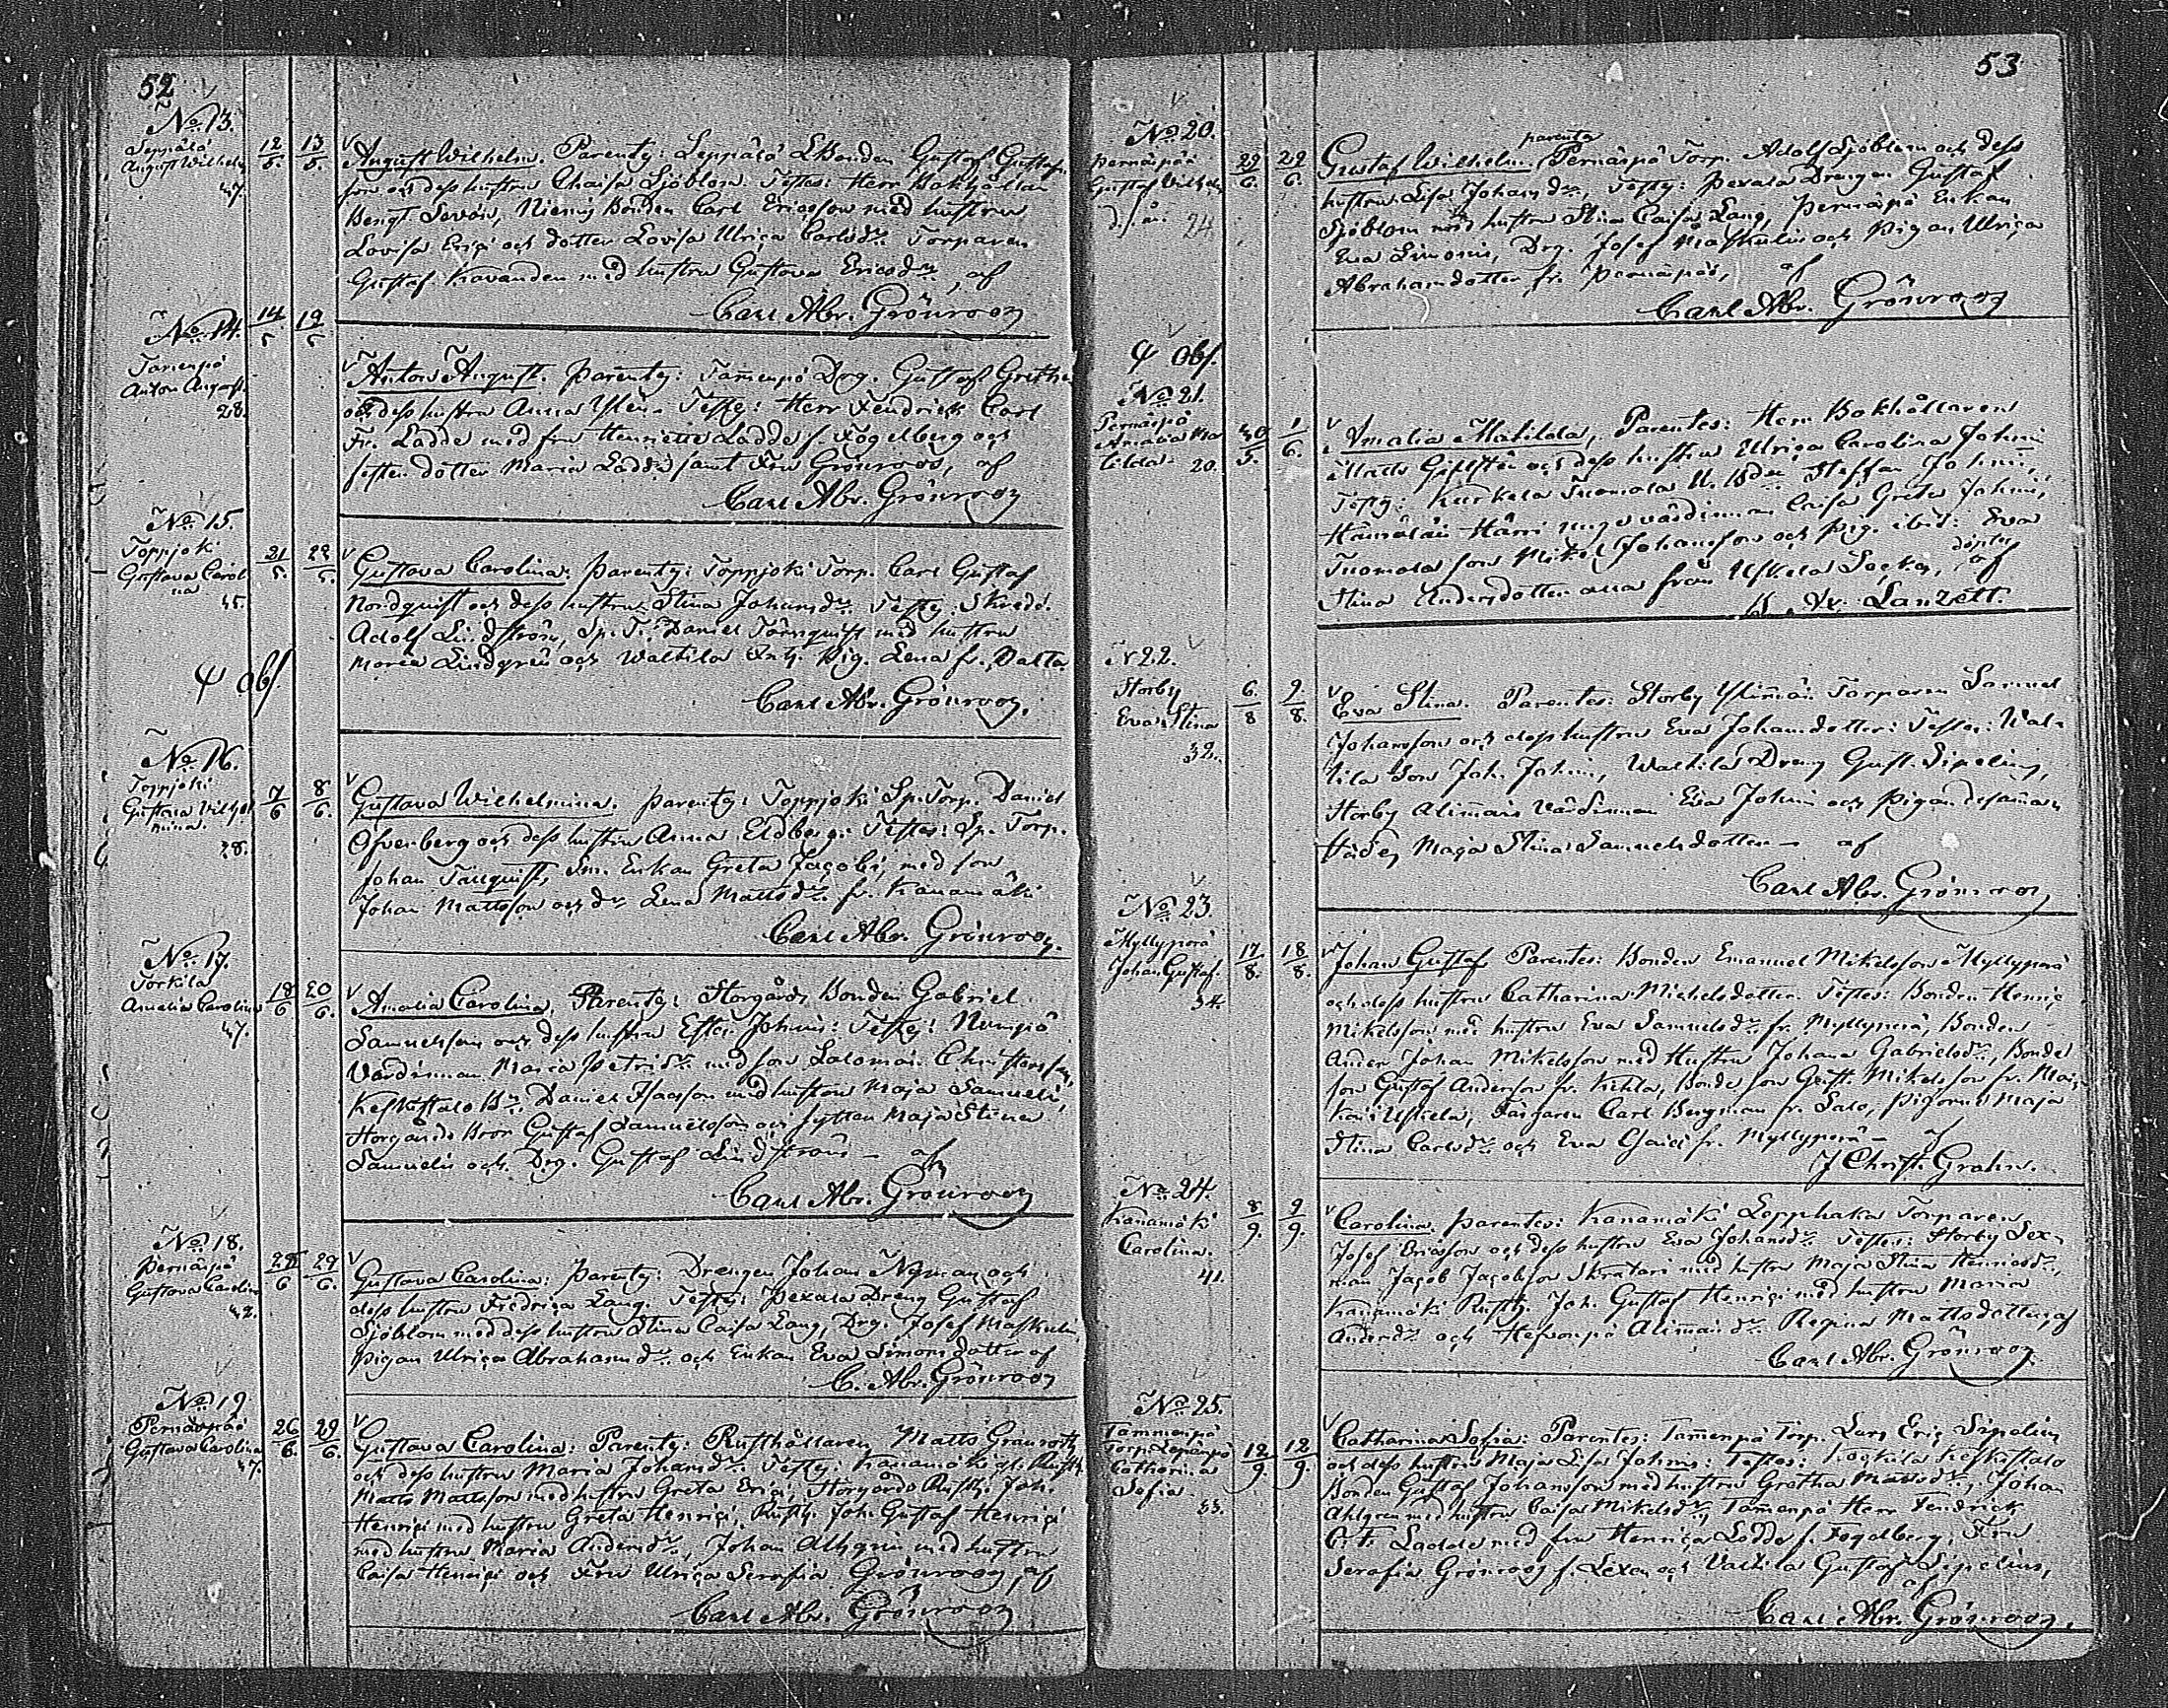 52
No 13.
Leppälä
August Wilhelm
47.
12/5. 13/5.
August Wilhelm. Parentes: Leppälä LBonden Gustaf Gustafs-
son och dess hustru Chaisa Sjöblom. Testes: Herr Bokhållar
Bengt Levón, Bonden Carl Ericsson med hustru
Lovisa Erici och dotter Lovisa Ulrica Carlsdr. Torparen
Gustaf Kavander med hustru Gustava Ericsdr, af
Carl Abr. Grönroos
No 14.
14/5 19/5
Tamenpä
Anton August.
28.
Anton August. Parentes: Tam̄enpä Drg. Gustaf
och dess hustru Anna Testes: Herr Fendrick Carl
Fr. Ladde med fru Henriette Ladde f. Fogelberg och
dotter Maria Ladde samt Fru Grönroos, af
Carl Abr. Grönroos
No 15.
Toppjoki
Gustava Caroli
na
45.
21/5. 22/5.
Gustava Carolina. Parentes: Toppjoki Torp. Carl Gustaf
Nordquist och dess hustru Stina Johansdr. Testes: Skredd.
Adolf Lindström, Sp. T. Daniel Törnquist med hustru
Maria Lindgrén och Waltila Pig. Lena fr.
Carl Abr. Grönroos.
Obs.
No 16.
Toppjoki
Gustava Wilhel
mina.
28.
7/6 8/6.
Gustava Wilhelmina. Parentes: Toppjoki Sp. Torp. Daniel
Ofvenberg och dess hustru Anna Eldberg: Testes: Sp. Torp.
Johan Enkan Greta Jacobi, med son
Johan Mattsson och dr Lena Mattsdr. fr. Kanamäki
Carl Abr. Grönroos.
No 17.
Torkila
Amalia Carolina
47.
18/6 20/6.
Amalia Carolina, Parentes: Storgårds Bonden Gabriel
Samuelsson och dess hustru Ester Johani: Testes: Numpä
Värdinnan Maria Petridr. med son Salomon Christersson,
Keskistalo Bn. Daniel Isacsson med hustru Maja Samueli,
Storgårds Bror Gustaf Samuelsson och systern Maja Stina
Samuelis och Drg. Gustaf Lindström - af
Carl Abr. Grönroos
No 18.
Pernäspä
Gustava Carolin
42.
28/6 29/6.
Gustava Carolina: Parentes: Drengen Johan Nyman och
dess hustru Fredrica Lang. Testes: Pexala Dreng Gustaf
Sjöblom med dess hustru Stina Caisa Lang, Drg. Josef Maskulin
Pigan Ulrica Abrahamsdr. och Enkan Eva Simonsdotter af
C. Abr. Grönroos
No 19
Pernäspää
Gustava Carolina
47.
26/6. 29/6
Gustava Carolina: Parentes: Rusthållaren Matts
och dess hustru Maria Johansdr. Testes: Kanamäki
Matts Mattsson med hustru Greta Erici, Storgårds Rusth. Joh.
Henrici med hustru Greta Henrici, Rusth. Joh. Gustaf Henrici
med hustru Maria Andersdr., Johan Ahlgrén med hustru
Caisa Henrici och Fru Ulrica Serafia Grönroos, af
Carl Abr. Grönroos
53
No 20.
Pernäspää
Gustaf Wilhelm
24
29/6. 29/6.
parentes
Gustaf Wilhelm, Pernäspä Torp. Adolf Sjöblom och dess
hustru Lisa Johansdr. Testes: Pexala Drengen Gustaf
Sjöblom med hustru Stina Caisa Lang, Pernäspä Enkan
Eva Simonis, Drg. Josef Maskulin och Pigan Ulrica
Abrahamsdotter fr. Pernäspää, af
Carl Abr. Grönroos
Obs.
No 21.
Pernäspä
Amalia Ma
tilda. 20.
30/5. 1/6.
Amalia Matilda, Parentes: Herr Bokhållaren
Matts och dess hustru Ulrica Carolina Johani
Testes: Kurkela Tuomola Bden Steffan Johani,
Hämäläis Härri unge värdinnan Caisa Greta Johani,
Tuomola son Mikel Johansson och pig. ibid: Eva
Stina Andersdotter alla från Uskela Socken, döpt af
Lanzett.
N 22.
Storby
Eva Stina
32.
6/8 9/8.
Eva Stina. Parentes: Storby Torparen Samuel
Johansson och dess hustru Eva Johansdotter: Testes: Wal-
tila Son Joh. Johani, Waltila Dreng Gust. Sipelius,
Storby Alim̄ais Värdinnan Eva Johani och Pigan dersam̄a-
städes Maja Stina Samuelsdotter - af
Carl Abr. Grönroos
No 23.
Myllyperä
Johan Gustaf.
34.
17/8. 18/8.
Johan Gustaf Parentes: Bonden Emanuel Mikelsson Myllyperä
och dess hustru Catharina Michelsdotter. Testes: Bonden Henric
Mikelsson med hustru Eva Samuelsdr. fr. Myllyperä, Bonden
Johan Mikelsson med Hustru Johana Gabrielsdr., Bonde
son Gustaf Andersson fr. Kihla, Bonde son Gust. Mikelsson fr.
Uskela, Färgaren Carl Bergman fr. Salo, Pigorne Maja
Stina Carlsdr. och Eva fr. Myllyperä - af
J Christ. Grahn.
No 24.
Kanamäki
Carolina.
41.
8/9. 9/9.
Carolina. Parentes: Kanamäki Torparen
Josef Ericsson och dess hustru Eva Johansdr. Testes: Storby Sex-
man Jacob Jacobsson Skratari med hustru Maja Stina Henricsdr.,
Kanamäki Rusth. Joh. Gustaf Henrici med hustru Maria
Andersdr. och Alim̄ais dr. Regina Mattsdotter, af
Carl Abr. Grönroos.
No 25.
Tammenpä
Torp
Catharina
Sofia.
33.
12/9. 12/9.
Catharina Sofia: Parentes: Tam̄enpä Torp. Lars Eric Sipelius
och dess hustru Maja Lisa Johani: Testes: Keskistalo
Bonden Gustaf Johansson med hustru Gretha Mattsdr., Johan
Ahlgren med hustru Caisa Mikelsdr., Tamenpä Herr Fendrick
C. F. Ladde med fru Henrica Ladde f. Fogelberg, Fru
Serafia Grönroos f. Lexen och Valtila Gustaf Sipelius,
af
Carl Abr. Grönroos.